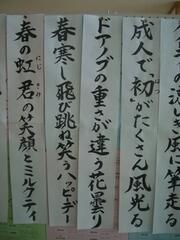 の涼しき風に竿走る
成人で「初」がたくさん風光る
はつ
ドアノブの重さが違う花曇り
春寒し飛び跳ね笑うハッピーデー
春の虹君の笑顔とミルクティ
にじ
きみ